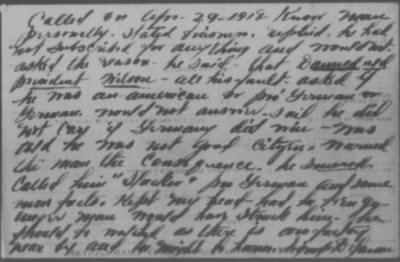 Called on Apr. 29-1918 Know man
personally. Stated reasons. replied. he had
not subscribed for anything and would not.
asked the reason - he said, that Damned old
president Wilson - all his fault. asked if
he was an american or pro German or
German. would not answer. said he did
not care if Germany did win - was
old he was not good Citizen - warned
the man the Consequence. he sneered
Called him "Slacker" pro German and some
more facts. Kept my head had he been yo-
unger man would have struck him - he
should be watched as there is
near by and he might do harm.